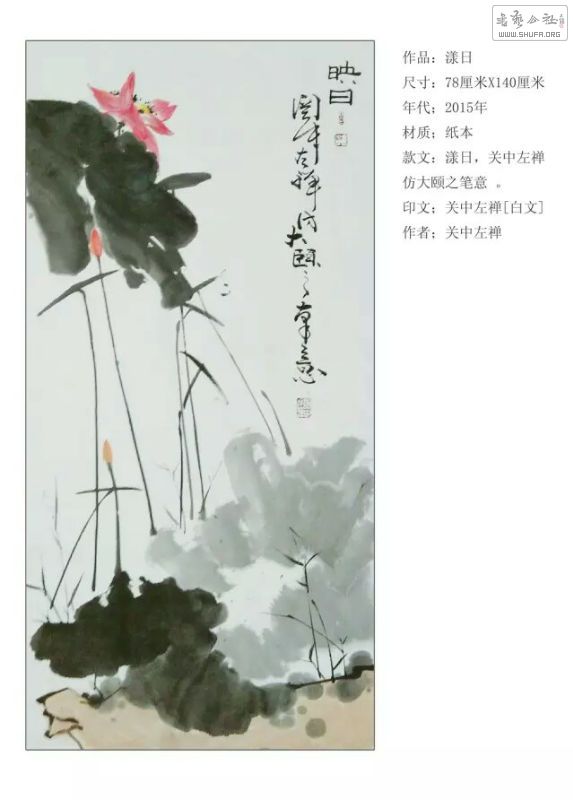 書艺公社
WWW.SHUFA.ORG
作品；漾日
尺寸：78厘米X140厘米
年代；2015年
材质；纸本
款文；漾日，关中左禅
仿大颐之笔意 。
印文；关中左禅[白文]
作者；关中左禅
映日
关中左禅仿大颐之笔意